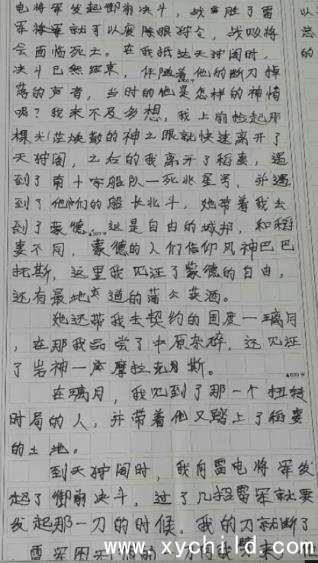 电将军发起御前决斗，战胜了雷
军就可以废除眼狩令，战败将
会面临死亡。在我抵达天狩阁时，
决斗已然结束，伴随着他的断刀掉
落的声音，当时的他是怎样的神情
呢？我来不及多想，我上前捡起那
棵光芒焕散的神之眼就快速离开了
天狩阁，之后的我离开了稻妻，遇
到了南十字船队一死兆星号，并遇
到了他们的船长北斗，她带着我去
到了蒙德，这是自由的城邦，和稻
妻不同，蒙德的人们信仰风神巴巴
托斯，这里我见证了蒙德的自由，
还有最地道的蒲公英酒。
她还带我去契约的国度一璃月
，在那我品尝了中原杂碎，还见证
了岩神一摩拉克斯。
在璃月，我见到了那一个扭转
时局的人，并带着他又踏上了稻妻
的土地。
到天狩阁时，我向雷电将军发
起了御前决斗，过了几招雷军就要
发起那一刀的时候，我的刀就断了
www.xychild.com